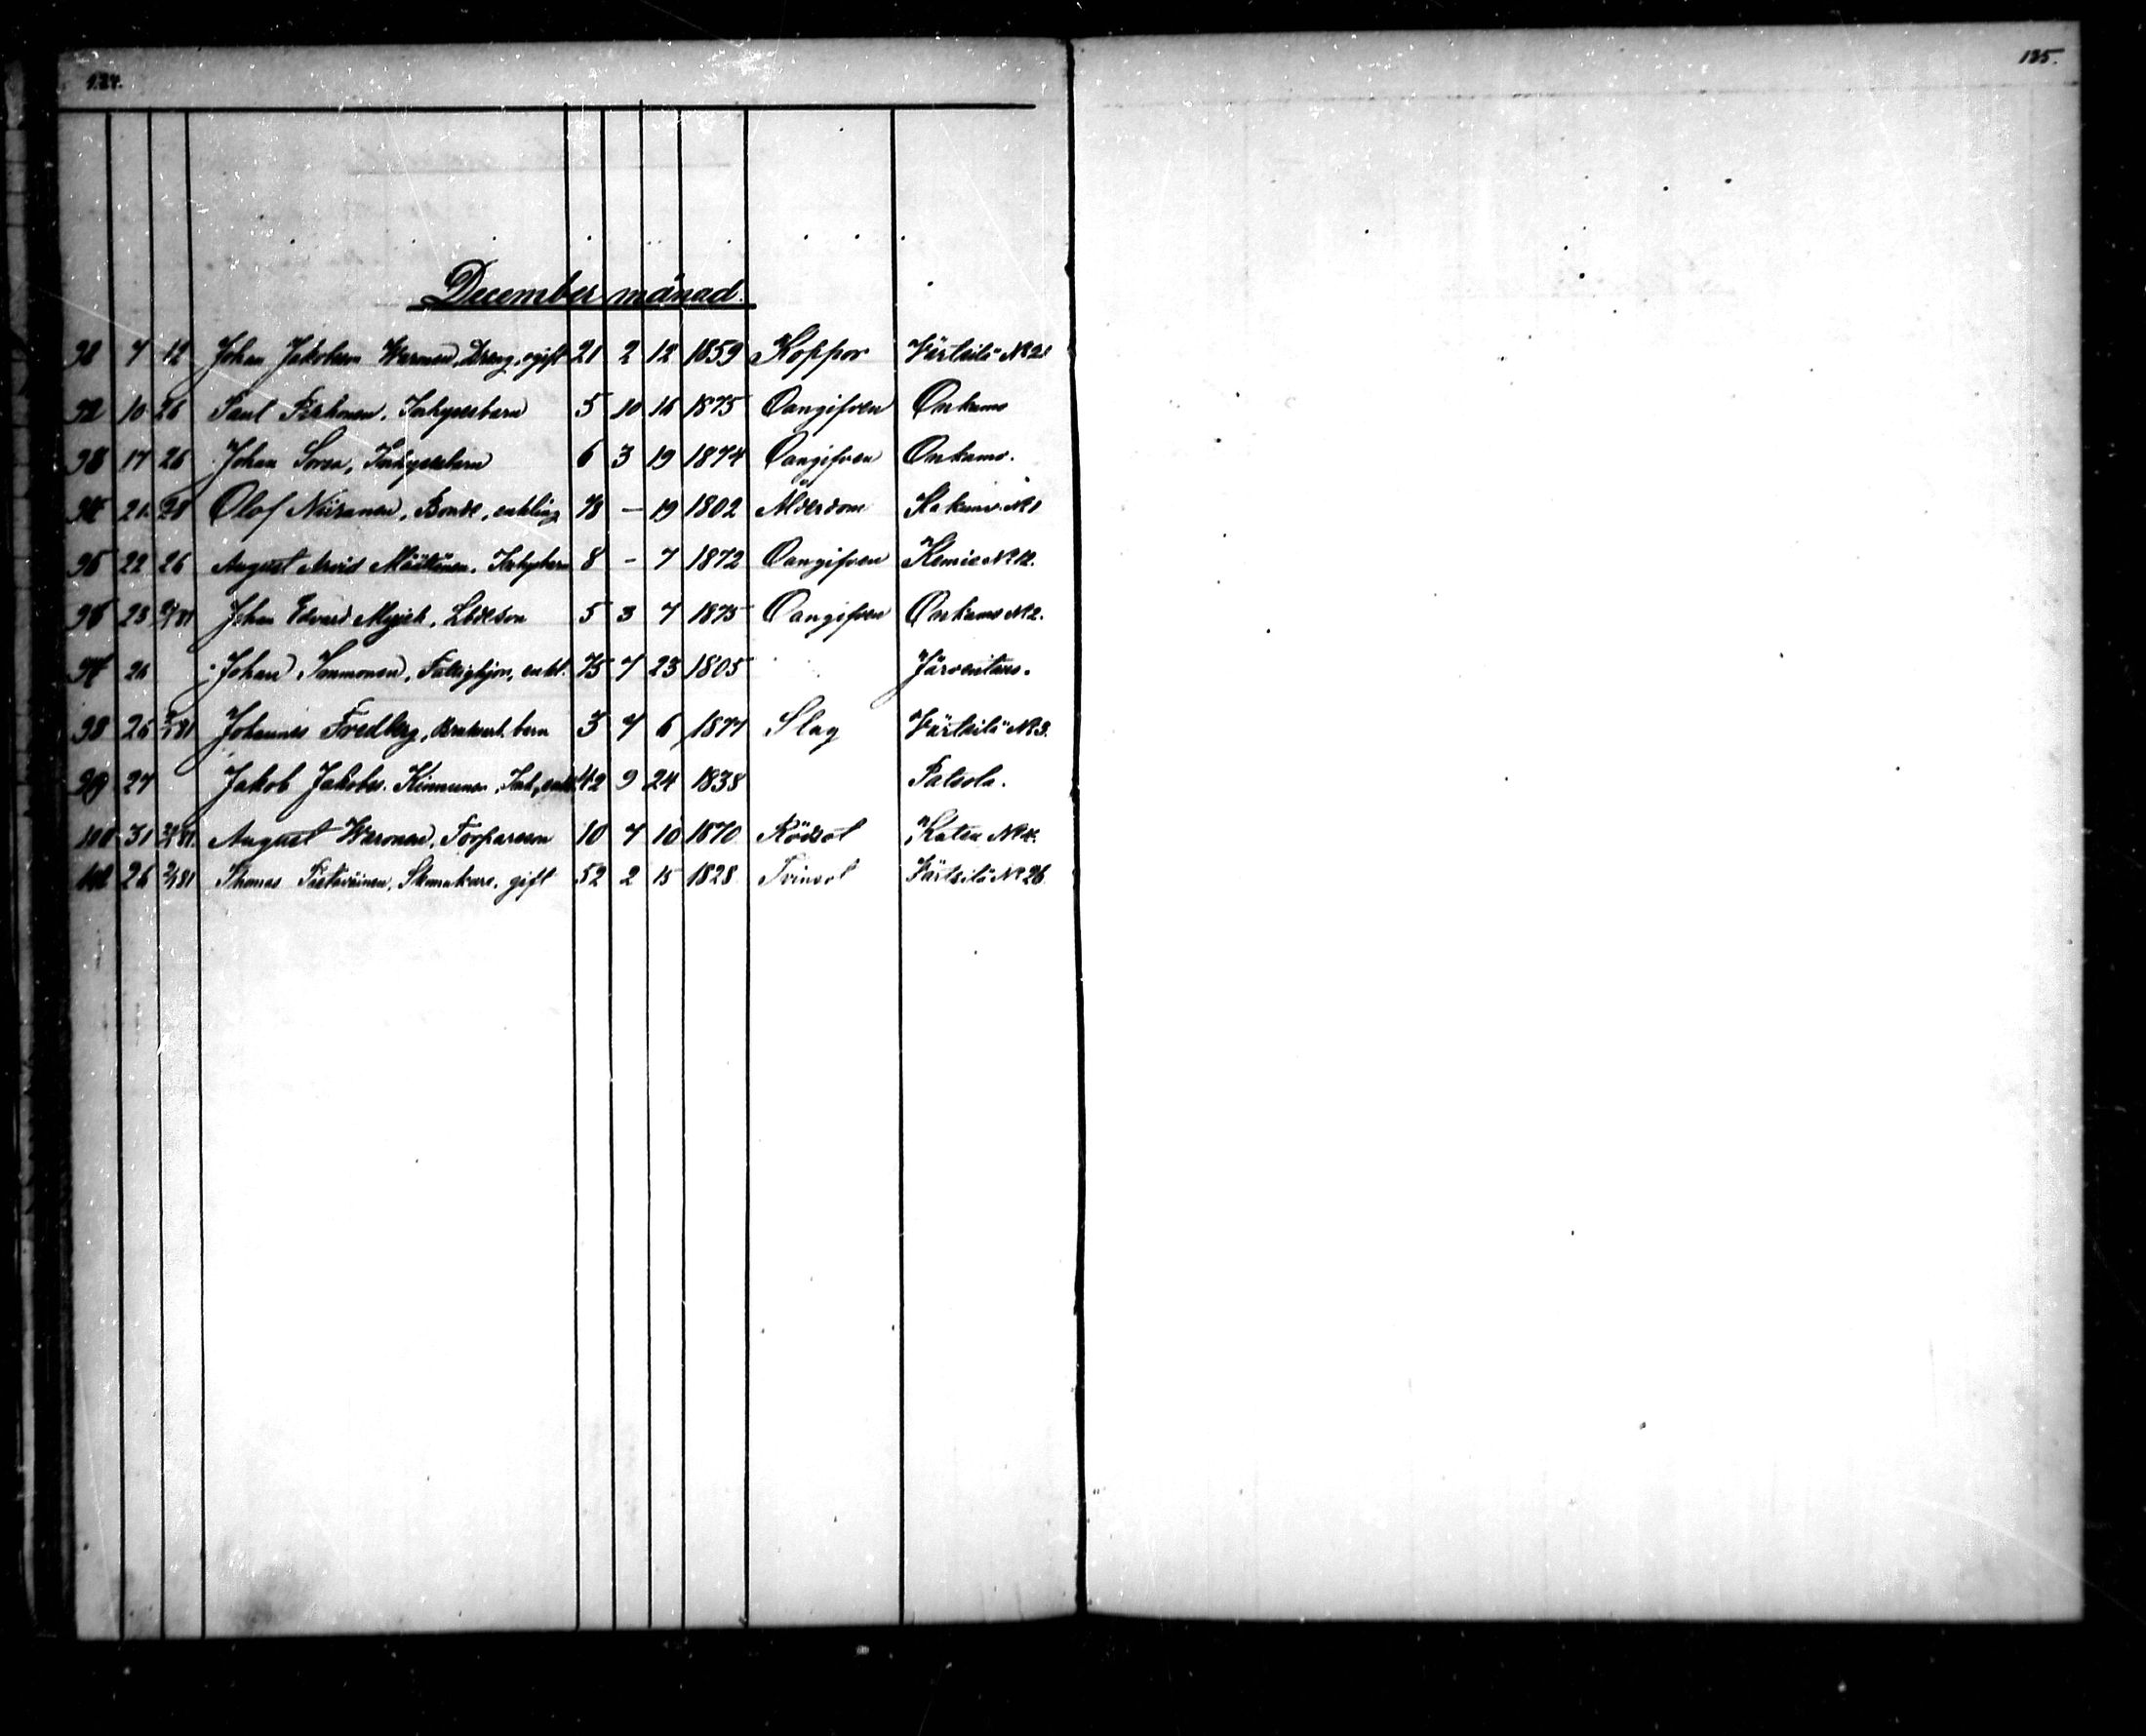 124. 135.
December månad.
7 12 Johan Jakobson Waronen, Dreng, ogift 21 2 12 1859 Koppor Värtsilä No 21
92 10 26 Paul Pirhonen, Inhysesbarn 5 10 16 1875 Oangifven Onkamo
93 17 26 Johan Sorsa, Inhysesbarn 6 3 19 1874 Oangifven Onkamo.
94 21 28 Olof Niiranen, Bonde, enkling 78 - 19 1802 Ålderdom Kakunv. No 1
95 22 26 August Arvid Määttänen, Inhysbarn 8 - 7 1872 Oangifven Kemie No 12.
96 23 /81 Johan Edvard 5 3 7 1875 Oangifven Onkamo No 2.
97 26 Johan Immonen, Fattighjon, enkl. 75 7 23 1805 Järventaus.
98 26 /81 Johannes Fredberg, barn 3 7 6 1877 Slag Värtsilä No 3.
99 27 Jakob Jakobs. Kinnunen, Inh., enkl. 42 9 24 1838 Patsola.
100 31 /81. August Waronen, Torpareson 10 7 10 1870 Rödsot Katen No 4.
101 26 2/1 81 Thomas Skomakare, gift 52 2 15 1828 Tvinsot Värtsilä No 26